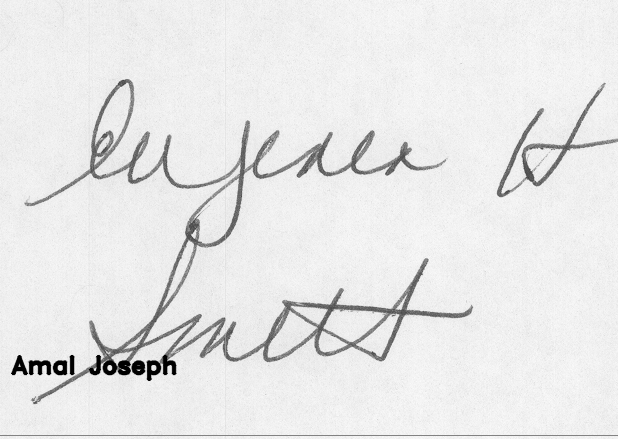 Eugenea H
Smith
Amal Joseph